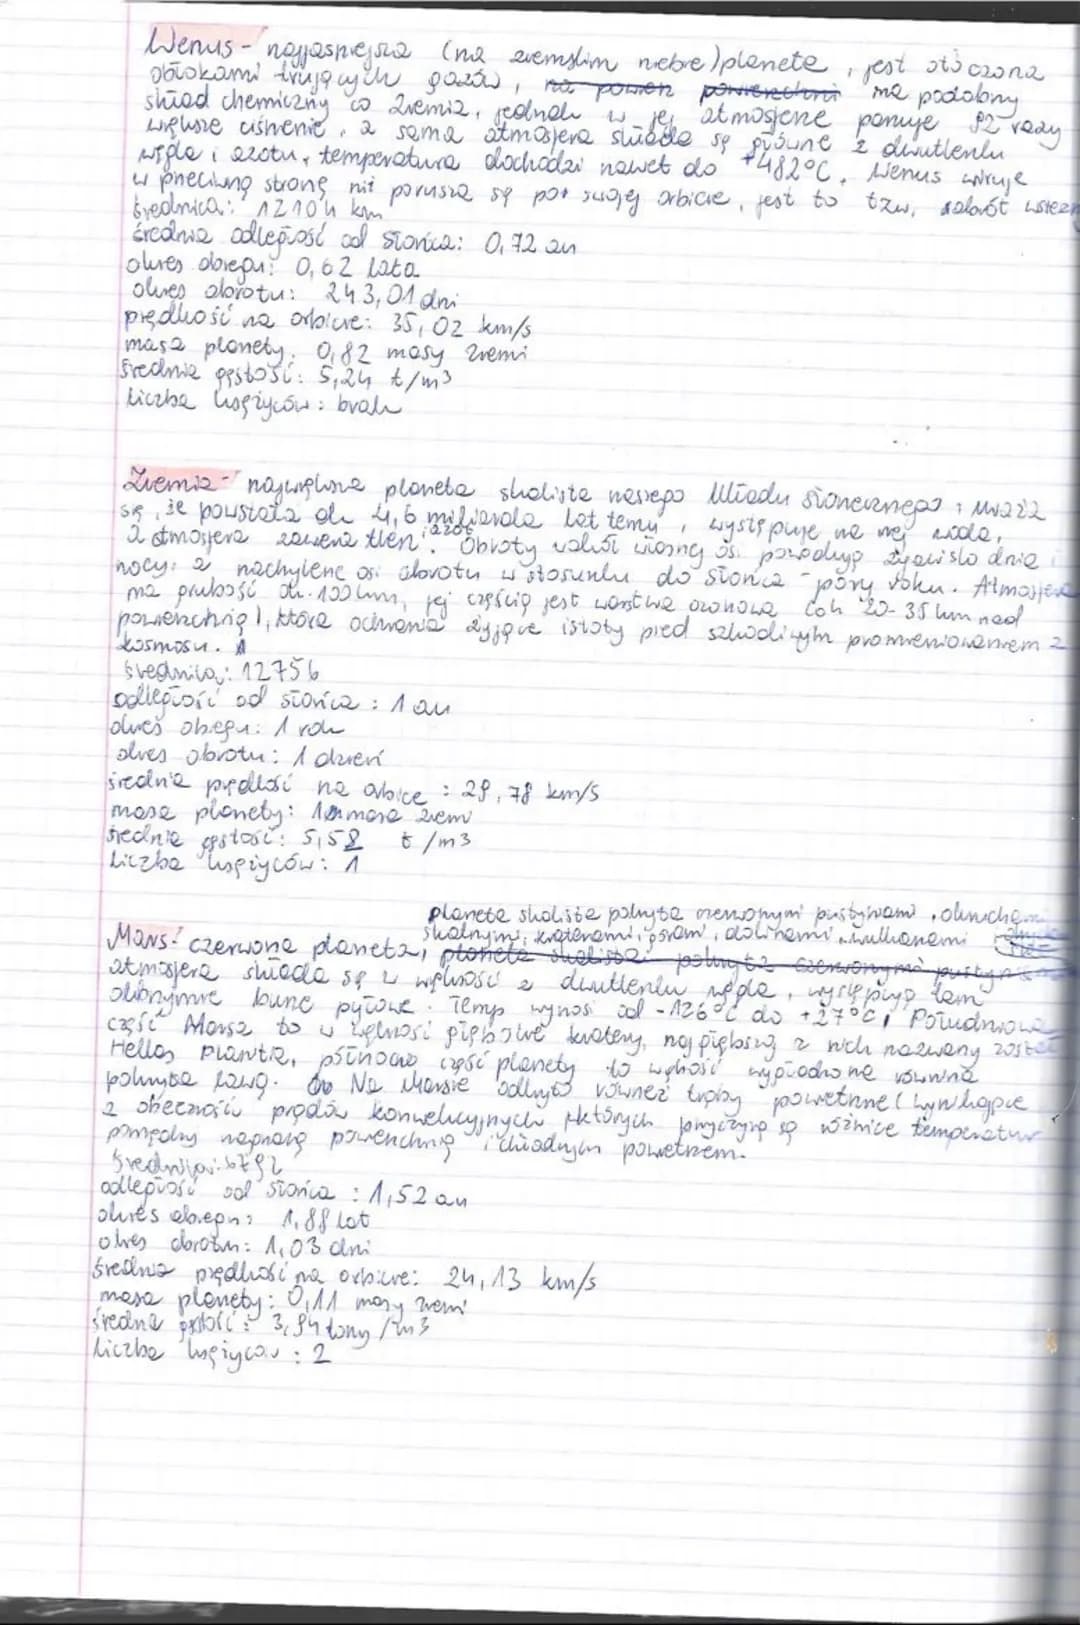 Wenus - najjaśniejsza (na ziemskim niebie) planeta, jest otoczona
obłokami trujących gazów, na powierz powierzchni ma podobny
skład chemiczny co Ziemia, jednak w jej atmosferze panuje 92 razy
większe ciśnienie, a sama atmosfera składa się głównie z dwutlenku
węgla i azotu, temperatura dochodzi nawet do +482°C. Wenus wiruje
w przeciwną stronę niż porusza się po swojej orbicie, jest to tzw.
średnica: 12104 km
średnia odległość od słońca: 0,72 au
okres obiegu: 0,62 lata
okres obrotu: 243,01 dni
prędkość na orbicie: 35,02 km/s
masa planety: 0,82 masy Ziemi
średnia gęstość: 5,24 t/m3
liczba księżyców: brak
Ziemia - największa planeta skalista naszego Układu Słonecznego, uważa
się, że powstała ok 4,6 miliarda lat temu, występuje na niej woda,
azot
a atmosfera zawiera tlen i Obroty wokół własnej osi powodują zjawisko dnia i
nocy; a nachylenie osi obrotu w stosunku do słońca - pory roku. Atmosfera
ma grubość ok. 100 km, jej częścią jest warstwa ozonowa (ok 20-35 km nad
powierzchnią), która ochrania żyjące istoty przed szkodliwym promieniowaniem z
kosmosu.
średnica: 12756
odległość od słońca: 1 au
okres obiegu: 1 rok
okres obrotu: 1 dzień
średnia prędkość na orbice: 29,78 km/s
masa planety: 1 masa ziemi
średnia gęstość: 5,52 t/m3
liczba księżyców: 1
planeta skalista pokryta czerwonymi pustyniami, okruchami
skalnymi, kraterami, górami, dolinami, wulkanami
Mars - czerwona planeta, planeta skalista pokryta czerwonymi
atmosfera składa się w większości z dwutlenku węgla, występują tam
olbrzymie burze pyłowe. Temp wynosi od -126°C do +27°C, Południowa
część Marsa to w większości głębokie kratery, najgłębszy z nich nazwany został
Hellas Planitia, północna część planety to wygładzone równina
pokryta lawą. Na Marsie odkryto również trąby powietrzne (wynikające
z obecności prądów konwekcyjnych których przyczyną są różnice temperatur
pomiędzy nagrzaną powierzchnią i chłodnym powietrzem.
średnica: 6792
odległość od słońca: 1,52 au
okres obiegu: 1,88 lat
okres obrotu: 1,03 dni
średnia prędkość na orbicie: 24,13 km/s
masa planety: 0,11 masy ziemi
średna gęstość: 3,94 tony/m3
liczba księżyców: 2